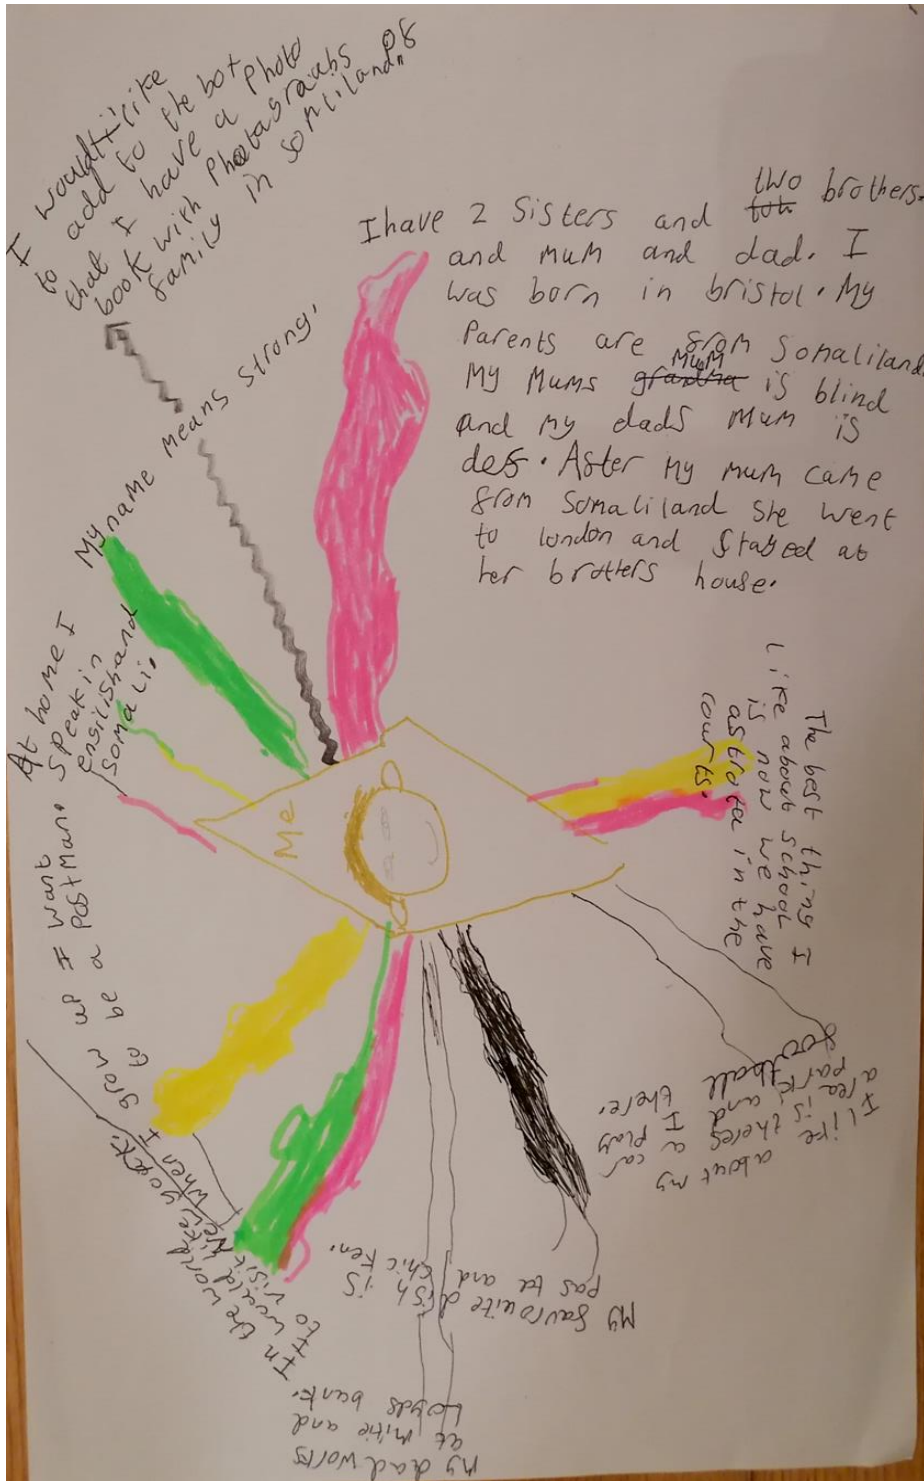 I would like
to add to the box
that I have a photo
book with photograabs of
family in somliland.
I have 2 Sisters and two brothers.
and mum and dad. I
was born in bristol. My
Parents are from Somaliland.
My Mums mum is blind
and my dads mum is
def. After my mum came
from Somaliland she went
to london and stayed at
her brothers house.
My name means strong.
At home I
speak in
english and
Somali.
Me
The best thing I
like about school
is now we have
astrota in the
courts.
I like about my
area is theres a car
park and I play
football there.
My favrouite dish is
pas ta and chicken.
my dad works
at mitie and
Loyds bank.
In the world
I would like
to visit New york.
When I grow up I want
to be a Postman.